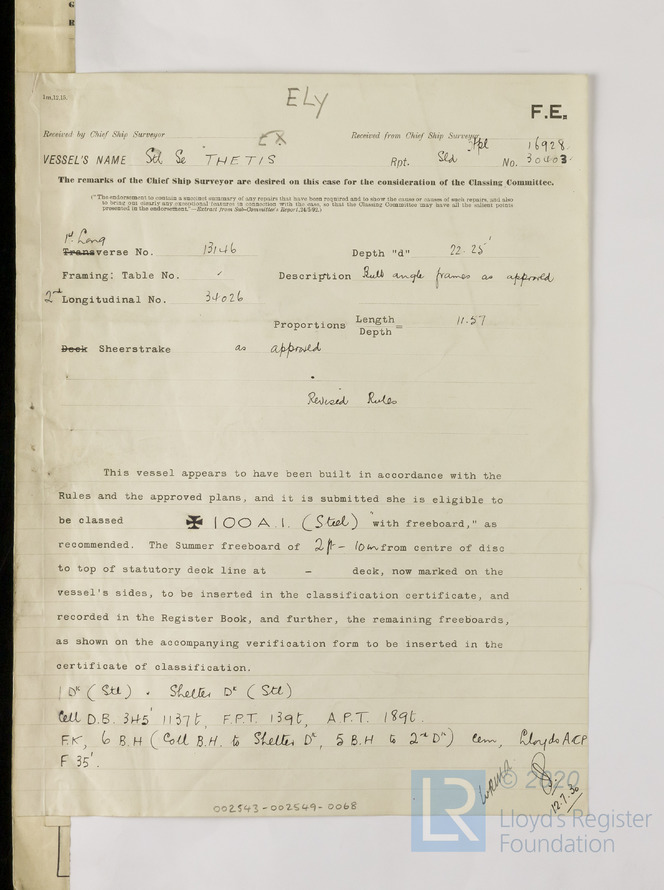 1m,12,15.
ELY
F.E.
Received by Chief Ship Surveyor
Received from Chief Ship Surveyor
Rpt 16928
VESSEL'S NAME Stl Sc THETIS Rpt. Sld No. 30403
The remarks of the Chief Ship Surveyor are desired on this case for the consideration of the Classing Committee.
("The endorsement to contain a succinct summary of any repairs that have been required and to show the cause or causes of such repairs, and also
to bring out clearly any exceptional features in connection with the case, so that the Classing Committee may have all the salient points
presented in the endorsement."—Extract from Sub-Committee's Report,
1st Long
Transverse No. 13146 Depth "d" 22.25'
Framing: Table No. Description Bulb angle frames as approved
2nd Longitudinal No. 34026
Proportions Length/Depth = 11.57
Deck Sheerstrake as approved
Revised Rules
This vessel appears to have been built in accordance with the
Rules and the approved plans, and it is submitted she is eligible to
be classed ✠ 100 A.1. (Steel) "with freeboard," as
recommended. The Summer freeboard of 2ft - 10in from centre of disc
to top of statutory deck line at – deck, now marked on the
vessel's sides, to be inserted in the classification certificate, and
recorded in the Register Book, and further, the remaining freeboards,
as shown on the accompanying verification form to be inserted in the
certificate of classification.
1 Dk (Stl) . Shelter Dk (Stl)
Cell D.B. 345' 1137t, F.P.T. 139t, A.P.T. 189t.
F.K, 6 B.H (Coll B.H. to Shelter Dk, 5 B.H to 2nd Dk) Cem, Lloyds A&CP
F 35'.
12.7.30
002543-002549-0068
© 2020
LR
Lloyd's Register
Foundation